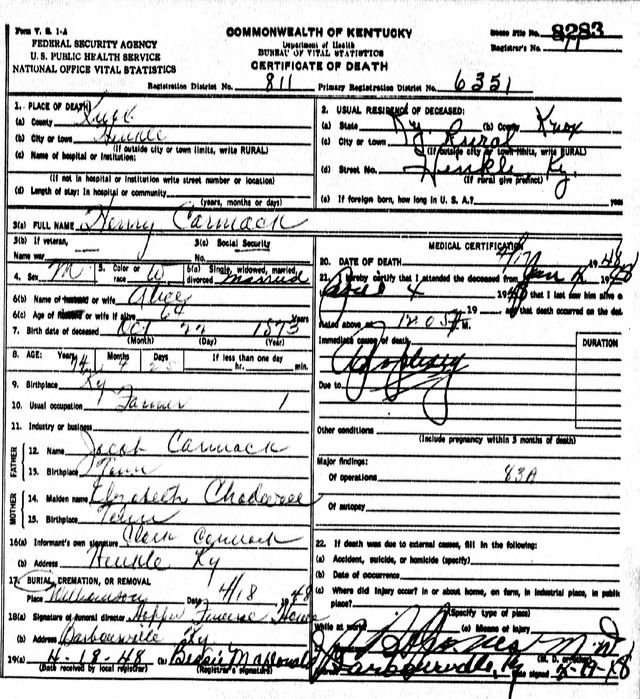 Form V. S. 1-A
FEDERAL SECURITY AGENCY
U. S. PUBLIC HEALTH SERVICE
NATIONAL OFFICE VITAL STATISTICS
COMMONWEALTH OF KENTUCKY
Department of Health
BUREAU OF VITAL STATISTICS
CERTIFICATE OF DEATH
File No. 8283
Registrar's No.
Registration District No. 811 Primary Registration District No. 6351
1. PLACE OF DEATH
(a) County Knox
(b) City or town Hinkle
(If outside city or town limits, write RURAL)
(c) Name of hospital or institution:
(If not in hospital or institution write street number or location)
(d) Length of stay: In hospital or community
(years, months or days)
2. USUAL RESIDENCE OF DECEASED:
(a) State Ky. (b) County Knox
(c) City or town Rural
(If outside city or town limits, write RURAL)
(d) Street No. Hinkle, Ky.
(If rural give precinct)
(e) If foreign born, how long in U. S. A.? years
3(a) FULL NAME Henry Carmack
3(b) If veteran, 3(c) Social Security
Name war No.
4. Sex M 5. Color or race W 6(a) Single, widowed, married, divorced Married
6(b) Name of husband or wife Alice
6(c) Age of husband or wife if alive 64 Years
7. Birth date of deceased Oct 22 1873
(Month) (Day) (Year)
8. AGE: Years Months Days If less than one day
74 hr. min.
9. Birthplace Ky
10. Usual occupation Farmer
11. Industry or business
FATHER
12. Name Jacob Carmack
13. Birthplace Tenn
MOTHER
14. Maiden name Elizabeth
15. Birthplace Tenn
16(a) Informant's own signature Clark Carmack
(b) Address Hinkle Ky
17. BURIAL, CREMATION, OR REMOVAL
Place Date 4/18 1948
18(a) Signature of funeral director Funeral Home
(b) Address Barbourville Ky
19(a) 4-18-48 (b) Bessie
(Date received by local registrar) (Registrar's signature)
MEDICAL CERTIFICATION
20. DATE OF DEATH 1948
21. I hereby certify that I attended the deceased from Jan 1948
4 1948 that I last saw him alive o
19 and that death occurred on the dat
stated above at M.
Immediate cause of death DURATION
Apoplexy
Due to
Other conditions
(Include pregnancy within 3 months of death)
Major findings:
Of operations 83A
Of autopsy
22. If death was due to external causes, fill in the following:
(a) Accident, suicide, or homicide (specify)
(b) Date of occurrence
(c) Where did injury occur? in or about home, on farm, in industrial place, in public
place?
(Specify type of place)
While at work (e) Means of injury
Jones M.D.
(M. D. or other)
Barbourville, Ky Date signed